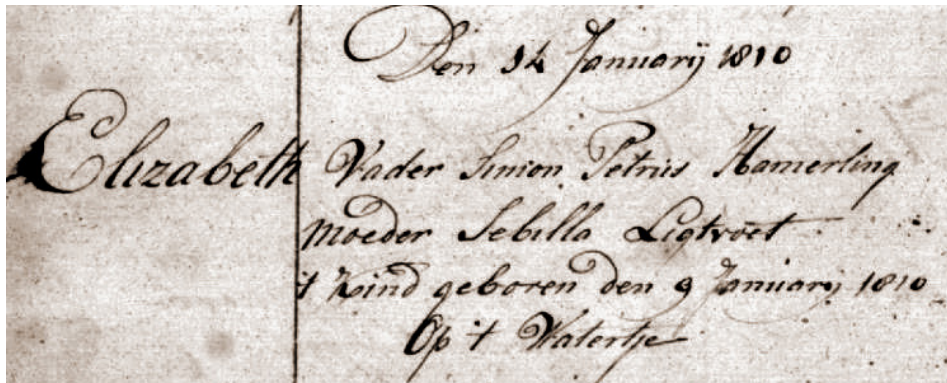 Den 14 Januarij 1810
Elizabeth Vader Simon Petrus Hamerling
Moeder Sebilla Ligtvoet
't Kind geboren den 9 January 1810
Op 't Watertje